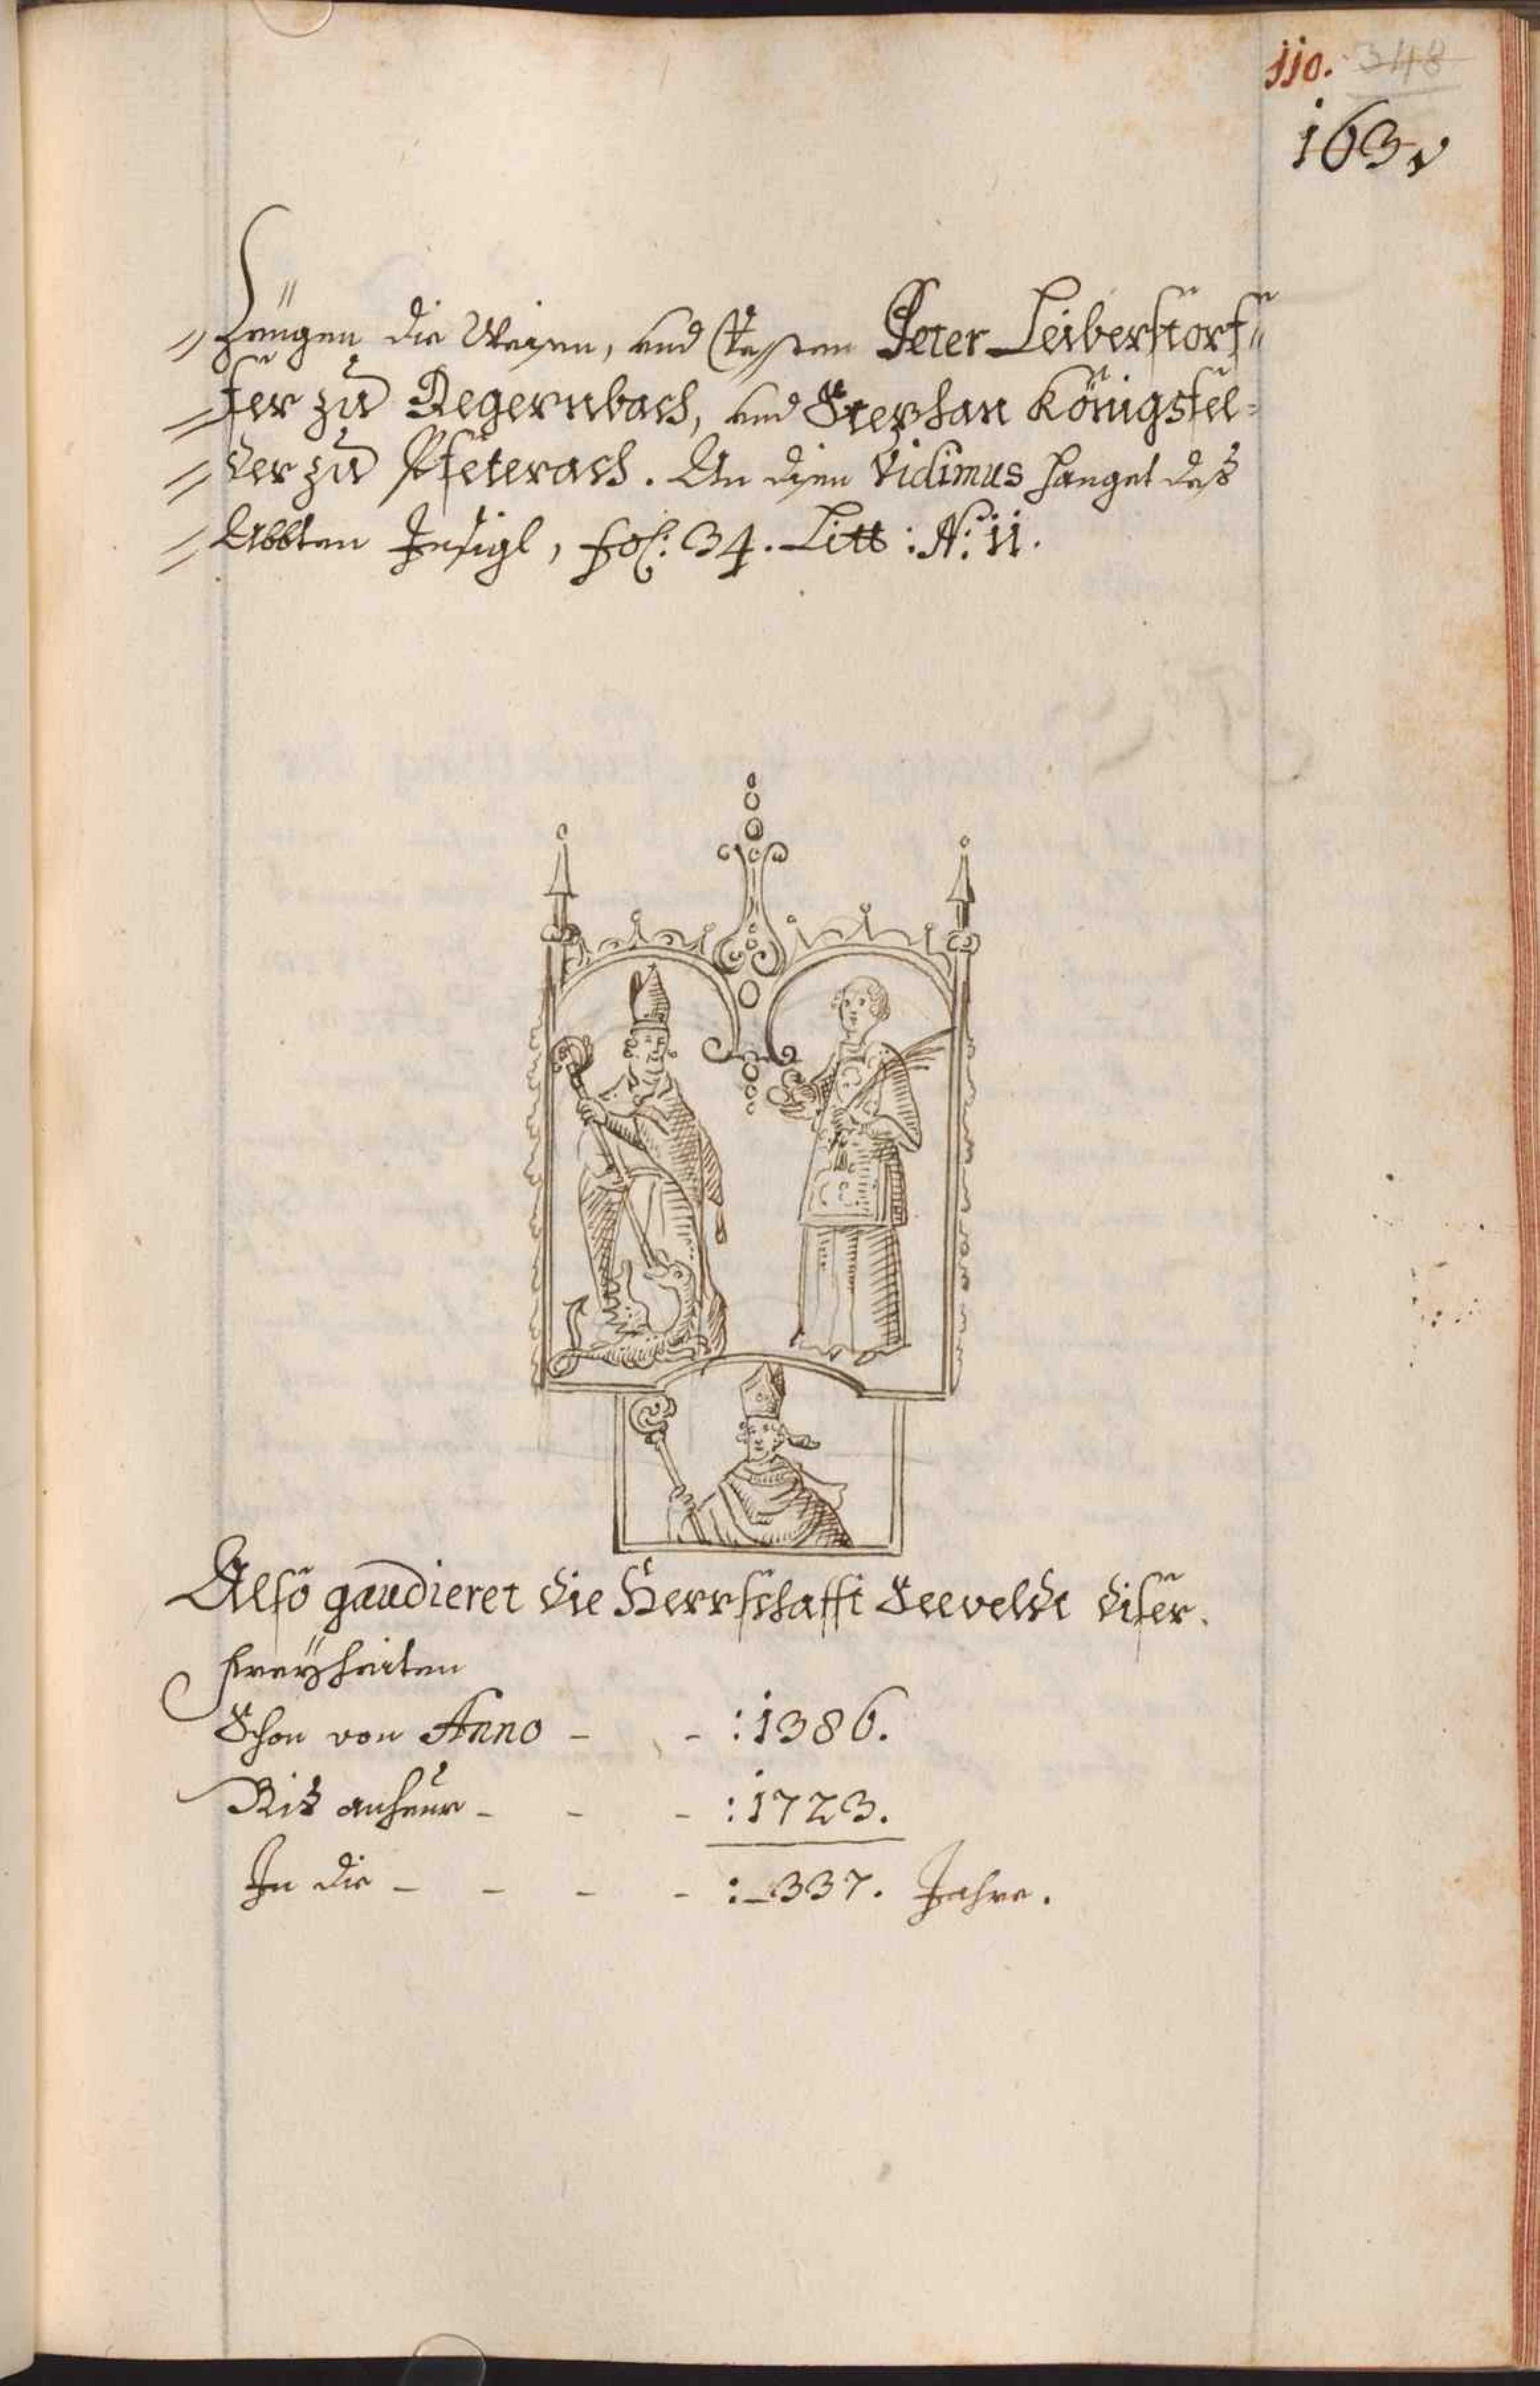 110. 348
163
„ Zeügen die Weisen, und Vesten Peter Leiberstorf„
„ fer zu Degernbach, und Stephan Königsfel=
„ der zu Pfeterach. An disem Vidimus hanget deß
„ Abbten Insigl, fol: 34. Litt: N: 11.
Also gaudieret die Herrschafft Seeveldt diser
freyheiten
Schon von Anno - - : 1386.
Biß anheur - - - : 1723.
In die - - - - : 337. Jahre.